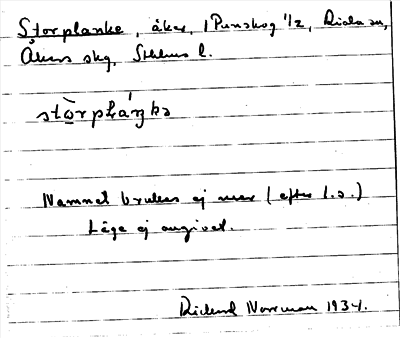 Storplanke, åker, 1 Punskog 1/2, Riala sn,
Åkers skg, Sthlms l.
stòrpláŋkə
Namnet brukas ej mer (efter l.s.)
Läge ej angivet.
Rickard Norrman 1934.